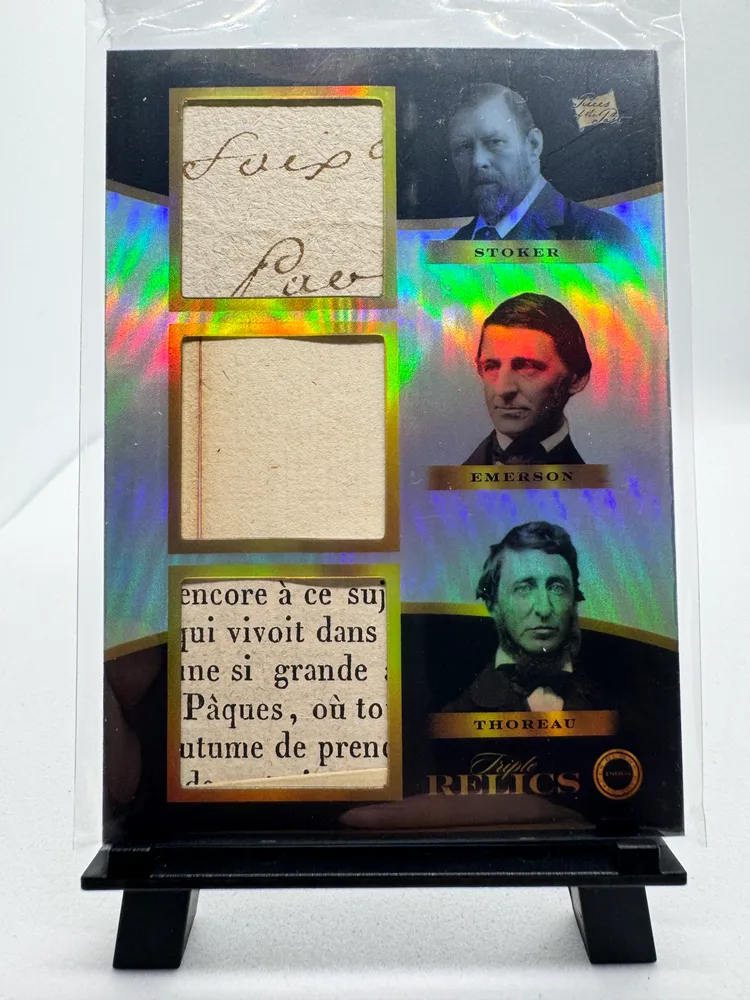 Soix
Pav
encore à ce suj
qui vivoit dans
une si grande
Pâques, où to
utume de pren
Pieces
of the Past
STOKER
EMERSON
THOREAU
Triple
RELICS